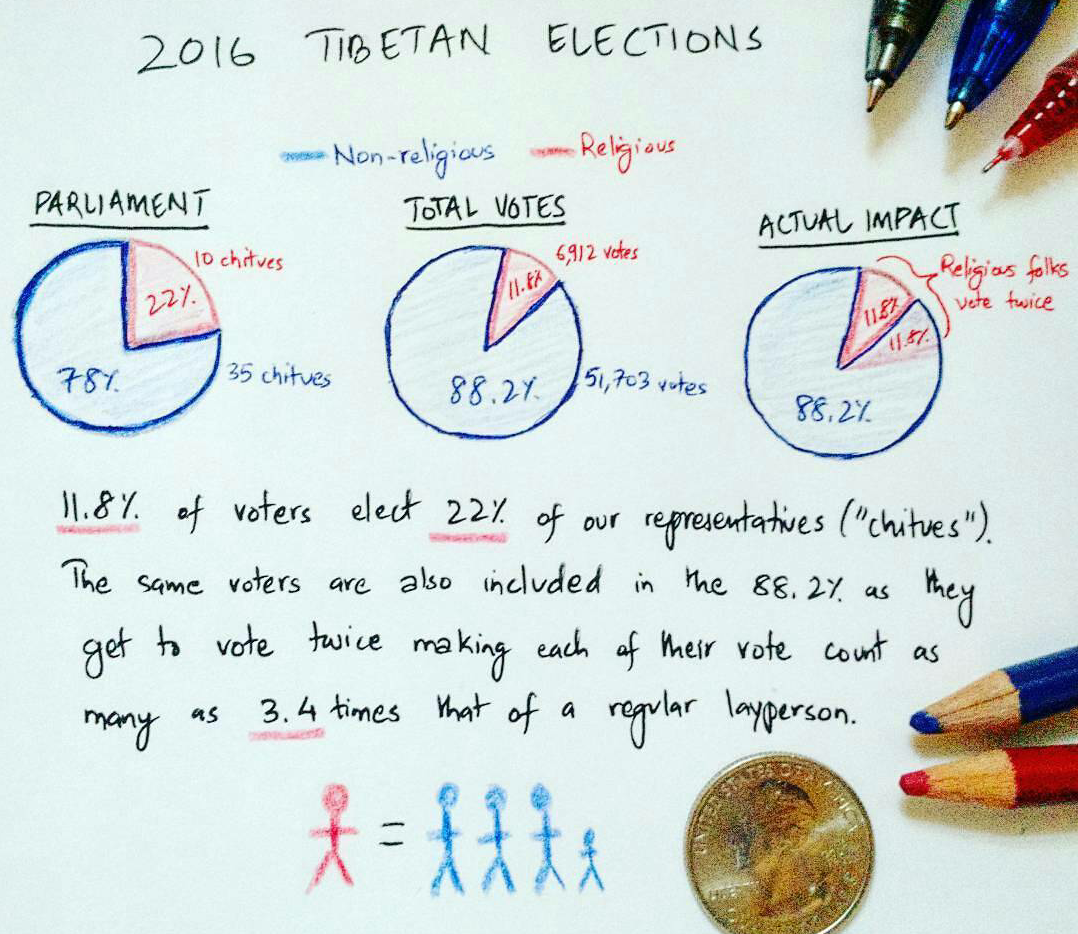 2016 TIBETAN ELECTIONS
Non-religious Religious
PARLIAMENT
10 chitves
22%
78%
35 chitves
TOTAL VOTES
6,912 votes
11.8%
88.2%
51,703 votes
ACTUAL IMPACT
Religious folks
vote twice
11.8%
11.8%
88.2%
11.8% of voters elect 22% of our representatives ("chitves").
The same voters are also included in the 88.2% as they
get to vote twice making each of their vote count as
many as 3.4 times that of a regular layperson.
=